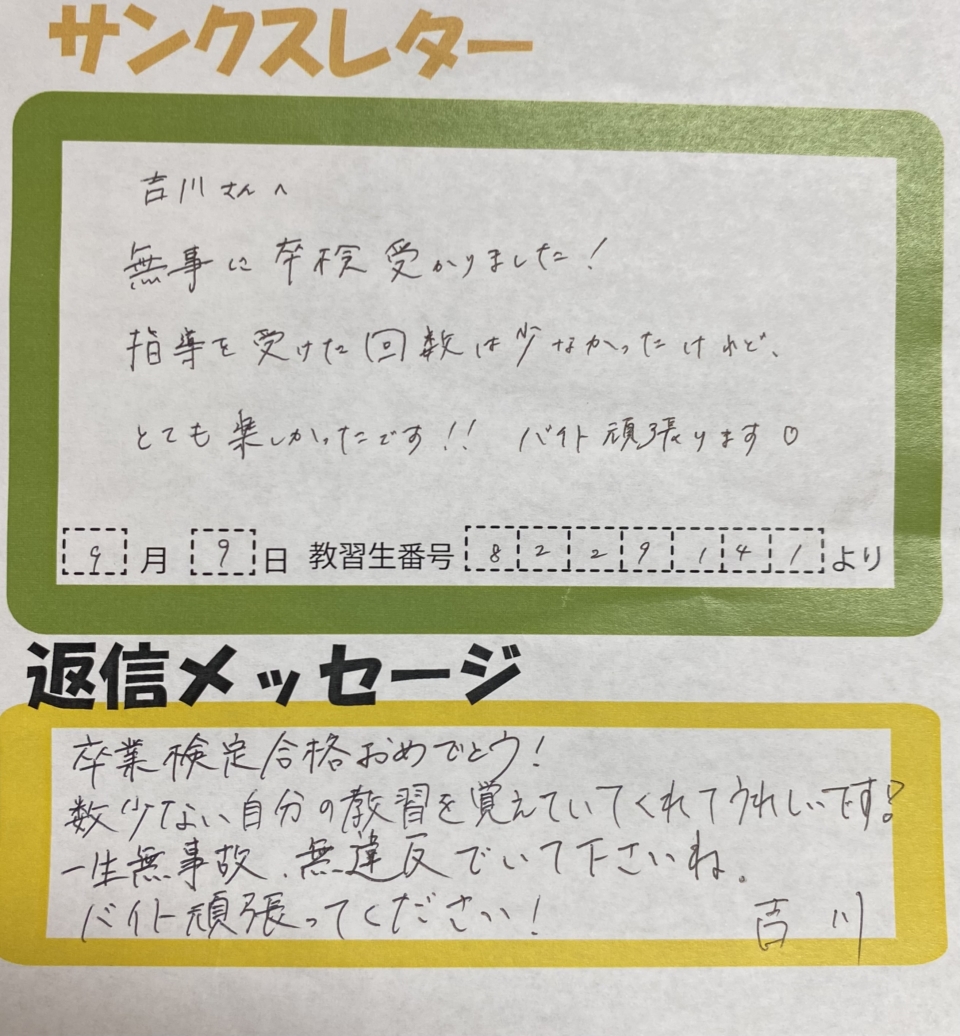 サンクスレター
吉川さんへ
無事に卒検受かりました!
指導を受けた回数は少なかったけれど、
とても楽しかったです!! バイト頑張ります
9月9日 教習生番号 8229141より
返信メッセージ
卒業検定合格おめでとう!
数少ない自分の教習を覚えていてくれてうれしいです!
一生無事故、無違反でいて下さいね。
バイト頑張ってください!
吉川